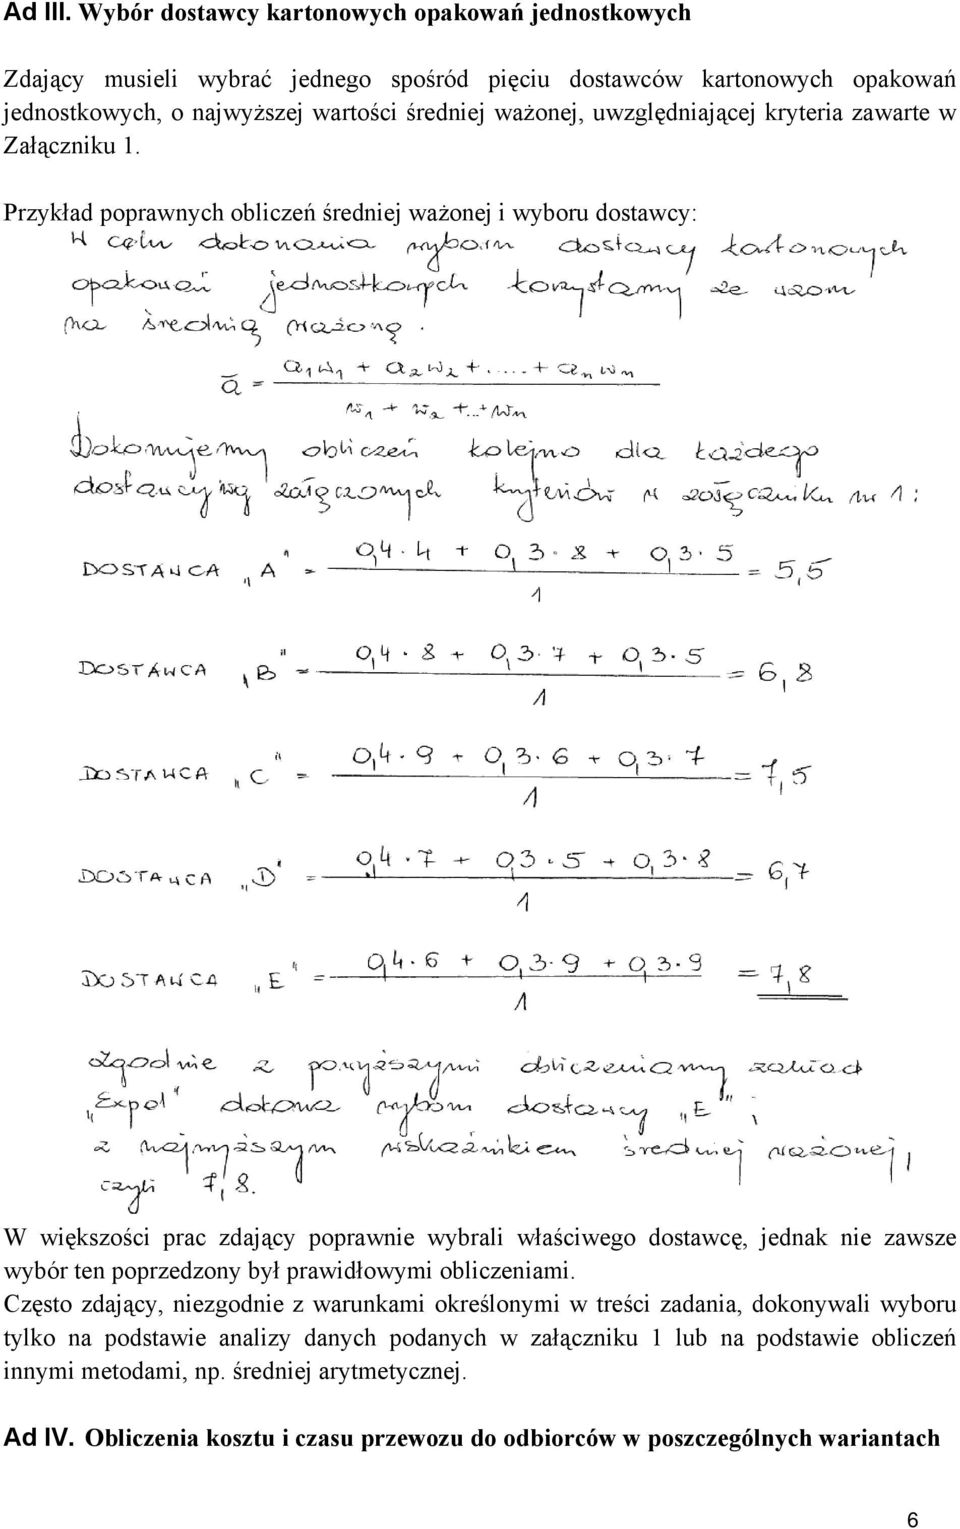 Ad III. Wybór dostawcy kartonowych opakowań jednostkowych
Zdający musieli wybrać jednego spośród pięciu dostawców kartonowych opakowań
jednostkowych, o najwyższej wartości średniej ważonej, uwzględniającej kryteria zawarte w
Załączniku 1.
Przykład poprawnych obliczeń średniej ważonej i wyboru dostawcy:
W celu dokonania wyboru dostawcy kartonowych
opakowań jednostkowych korzystamy ze wzoru
na średnią ważoną.
a̅ = (a₁w₁ + a₂w₂ + ..... + aₙwₙ) / (w₁ + w₂ + ... + wₙ)
Dokonujemy obliczeń kolejno dla każdego
dostawcy wg załączonych kryteriów w załączniku nr 1:
DOSTAWCA „A" = (0,4 · 4 + 0,3 · 8 + 0,3 · 5) / 1 = 5,5
DOSTAWCA „B" = (0,4 · 8 + 0,3 · 7 + 0,3 · 5) / 1 = 6,8
DOSTAWCA „C" = (0,4 · 9 + 0,3 · 6 + 0,3 · 7) / 1 = 7,5
DOSTAWCA „D" = (0,4 · 7 + 0,3 · 5 + 0,3 · 8) / 1 = 6,7
DOSTAWCA „E" = (0,4 · 6 + 0,3 · 9 + 0,3 · 9) / 1 = 7,8
Zgodnie z powyższymi obliczeniamy zakład
„Expol" dokona wyboru dostawcy „E";
z najwyższym wskaźnikiem średniej ważonej,
czyli 7,8.
W większości prac zdający poprawnie wybrali właściwego dostawcę, jednak nie zawsze
wybór ten poprzedzony był prawidłowymi obliczeniami.
Często zdający, niezgodnie z warunkami określonymi w treści zadania, dokonywali wyboru
tylko na podstawie analizy danych podanych w załączniku 1 lub na podstawie obliczeń
innymi metodami, np. średniej arytmetycznej.
Ad IV. Obliczenia kosztu i czasu przewozu do odbiorców w poszczególnych wariantach
6